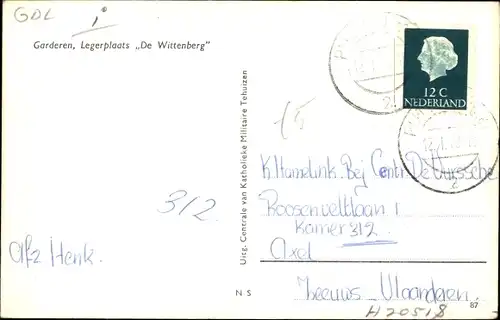 GDL i
Garderen, Legerplaats „De Wittenberg"
12 C
NEDERLAND
Uitg. Centrale van Katholieke Militaire Tehuizen
K. Hamelink. Bij Centr. De Vuyssche
Roosenveltlaan 1
Kamer 312
Axel
Zeeuws Vlaanderen.
312
Afz Henk.
N S
87
H20518